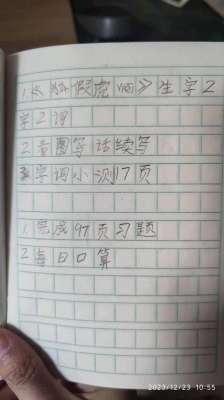 1.《狐假虎威》生字2
字2词
2看图写话续写
3字词小测17页
1完成97页习题
2每日口算
2023/12/23 10:55